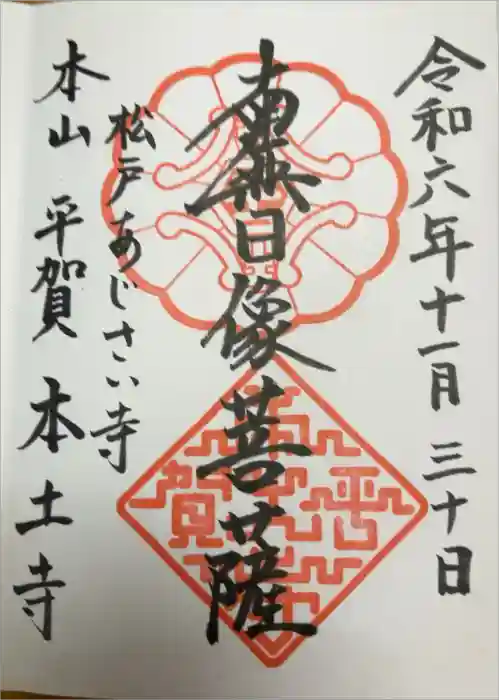 令和六年十一月三十日
南無日像菩薩
松戸あじさい寺
本山 平賀 本土寺
平賀